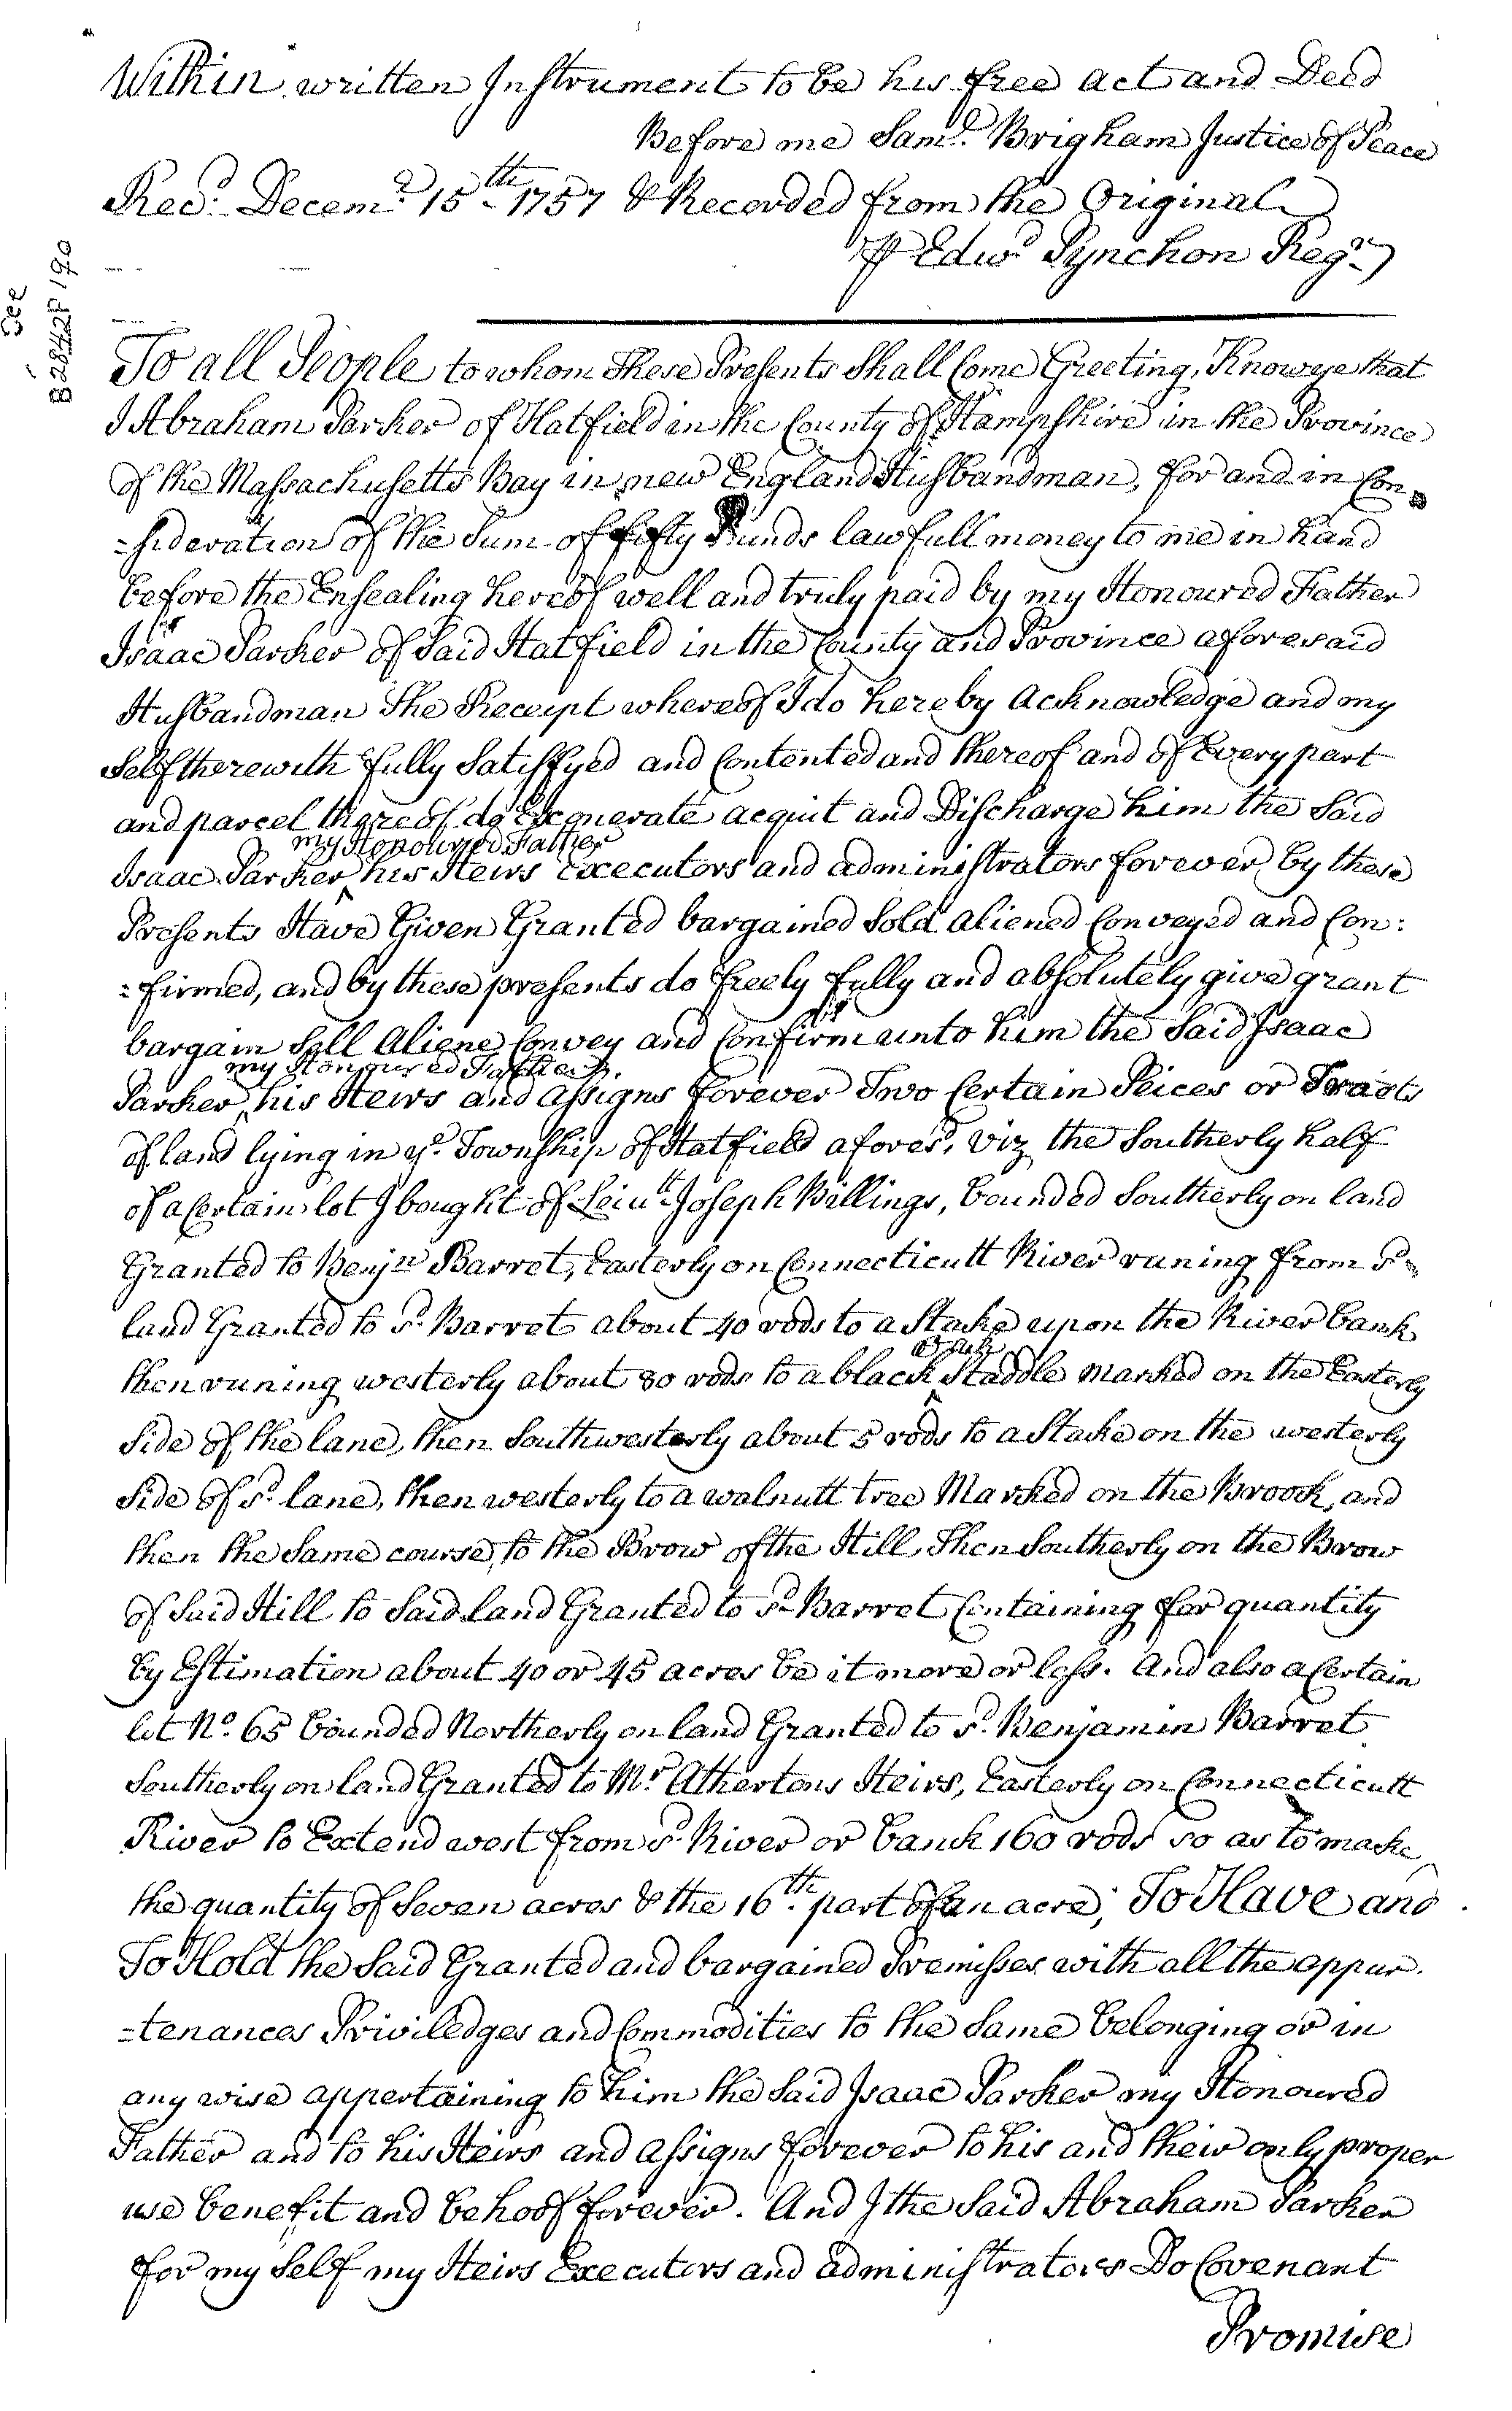 Within written Instrument to be his free act and Deed
Before me Sam:ll Brigham Justice of Peace
Rec:d Decem:r 15th 1757 & Recorded from the Original
℔ Edw:d Pynchon Reg:r
See
B 284 & 2 P 190
To all People to whom These Presents Shall Come Greeting, Know ye that
I Abraham Parker of Hatfield in the County of Hampshire in the Province
of the Massachusetts Bay in new England Husbandman, for and in Con-
=sideration of the Sum of fifty Punds lawfull money to me in hand
before the Ensealing hereof well and truly paid by my Honoured Father
Isaac Parker of Said Hatfield in the County and Province aforesaid
Husbandman The Receipt whereof I do hereby Acknowledge and my
Self therewith fully Satisfyed and Contented and thereof and of Every part
and parcel thereof do Exonerate acquit and Discharge him the Said
my Honoured Father
Isaac Parker ‸ his Heirs Executors and administrators forever by these
Presents Have Given Granted bargained Sold aliened Conveyed and Con:
=firmed, and by these presents do freely fully and absolutely give grant
bargain Sell Aliene Convey and Confirm unto him the Said Isaac
my Honoured Father
Parker ‸ his Heirs and Assigns forever Two Certain Peices or Tracts
of land lying in y:e Township of Hatfield afores:d, Viz the Southerly half
of a Certain lot I bought of Leiu:tt Joseph Billings, bounded Southerly on land
Granted to Benj:n Barret, Easterly on Connecticutt River runing from s:d
land Granted to s:d Barret about 40 rods to a Stake upon the River bank
then runing westerly about 80 rods to a black ‸ Staddle marked on the Easterly
side of the lane, then Southwesterly about 5 rods to a Stake on the westerly
side of s:d lane, then westerly to a walnutt tree Marked on the Broock, and
then the Same course to the Brow of the Hill, Then Southerly on the Brow
of Said Hill to Said land Granted to s:d Barret Containing for quantity
by Estimation about 40 or 45 acres be it more or less. And also a Certain
lot N:o 65 bounded Northerly on land Granted to s:d Benjamin Barret
Southerly on land Granted to M:r Athertons Heirs, Easterly on Connecticutt
River to Extend west from s:d River or banck 160 rods so as to make
the quantity of Seven acres & the 16th part of an acre; To Have and
To Hold the Said Granted and bargained Premisses with all the appur.
=tenances Priviledges and Commodities to the Same belonging or in
any wise appertaining to him the Said Isaac Parker my Honoured
Father and to his Heirs and Assigns forever to his and their only proper
use benefit and behoof forever. And I the Said Abraham Parker
for my Self my Heirs Executors and administrators Do Covenant
Promise